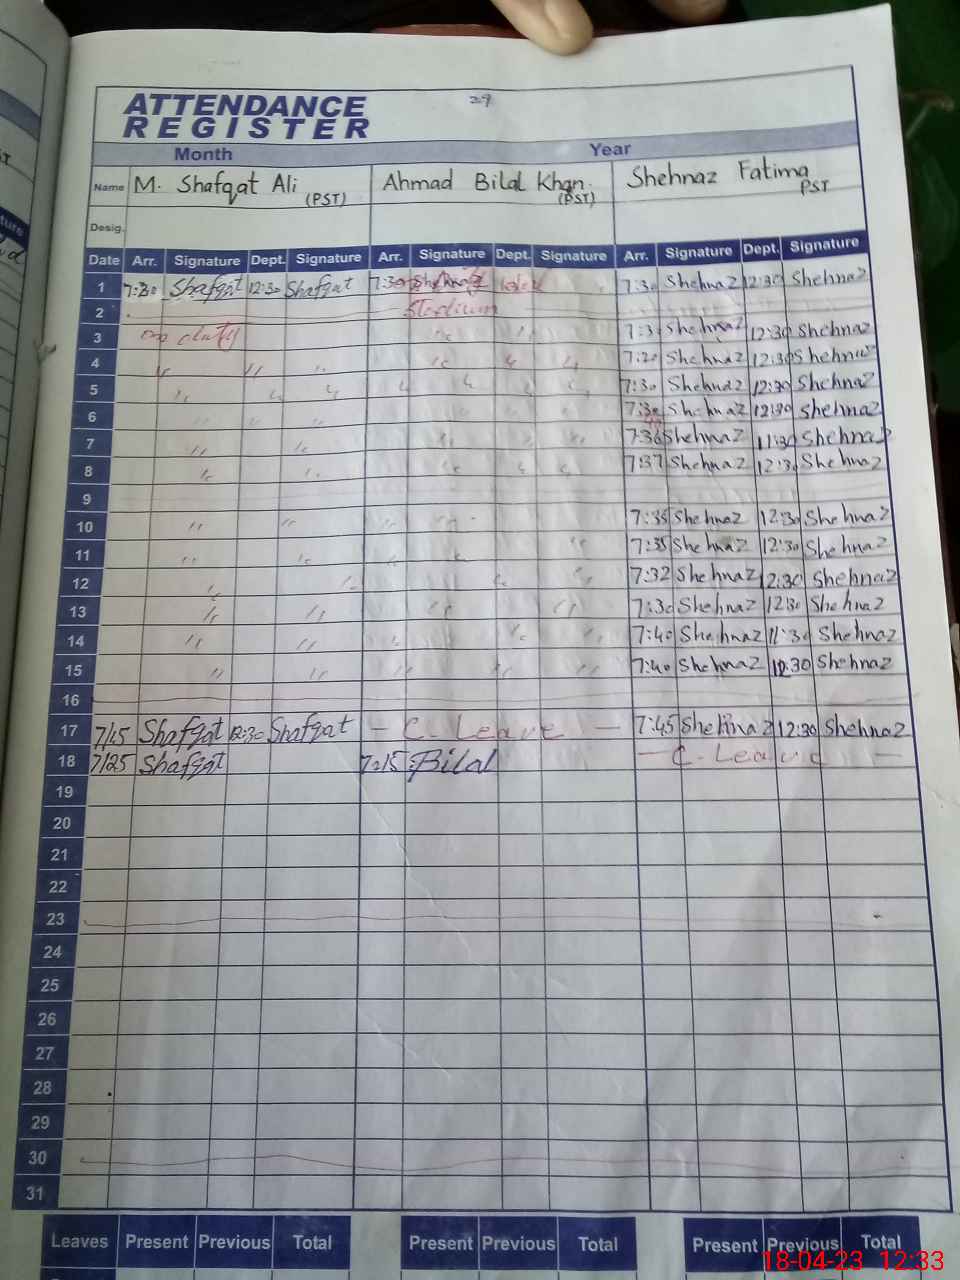 29
ATTENDANCE
REGISTER
Month Year
Name M. Shafqat Ali (PST) Ahmad Bilal Khan (PST) Shehnaz Fatima PST
Desig.
Date Arr. Signature Dept. Signature Arr. Signature Dept. Signature Arr. Signature Dept. Signature
1 7:30 Shafqat 12:30 Shafqat 7:30 7:30 Shehnaz 12:30 Shehnaz
2
3 on duty 7:30 Shehnaz 12:30 Shehnaz
4 " " " " " " 7:20 Shehnaz 12:30 Shehnaz
5 " " " " " " " 7:30 Shehnaz 12:30 Shehnaz
6 7:30 Shehnaz 12:30 Shehnaz
7 " " " " 7:36 Shehnaz 11:30 Shehnaz
8 " " " " " 7:37 Shehnaz 12:30 Shehnaz
9
10 " " " " 7:35 Shehnaz 12:30 Shehnaz
11 " " " " " 7:35 Shehnaz 12:30 Shehnaz
12 " " " " 7:32 Shehnaz 12:30 Shehnaz
13 " " " " 7:30 Shehnaz 12:30 Shehnaz
14 " " " " " 7:40 Shehnaz 11:30 Shehnaz
15 " " " " " 7:40 Shehnaz 12:30 Shehnaz
16
17 7/15 Shafqat 12:30 Shafqat - C. Leave - 7:45 Shehnaz 12:30 Shehnaz
18 7/25 Shafqat 7:15 Bilal - C. Leave -
19
20
21
22
23
24
25
26
27
28
29
30
31
Leaves Present Previous Total Present Previous Total Present Previous Total
18-04-23 12:33